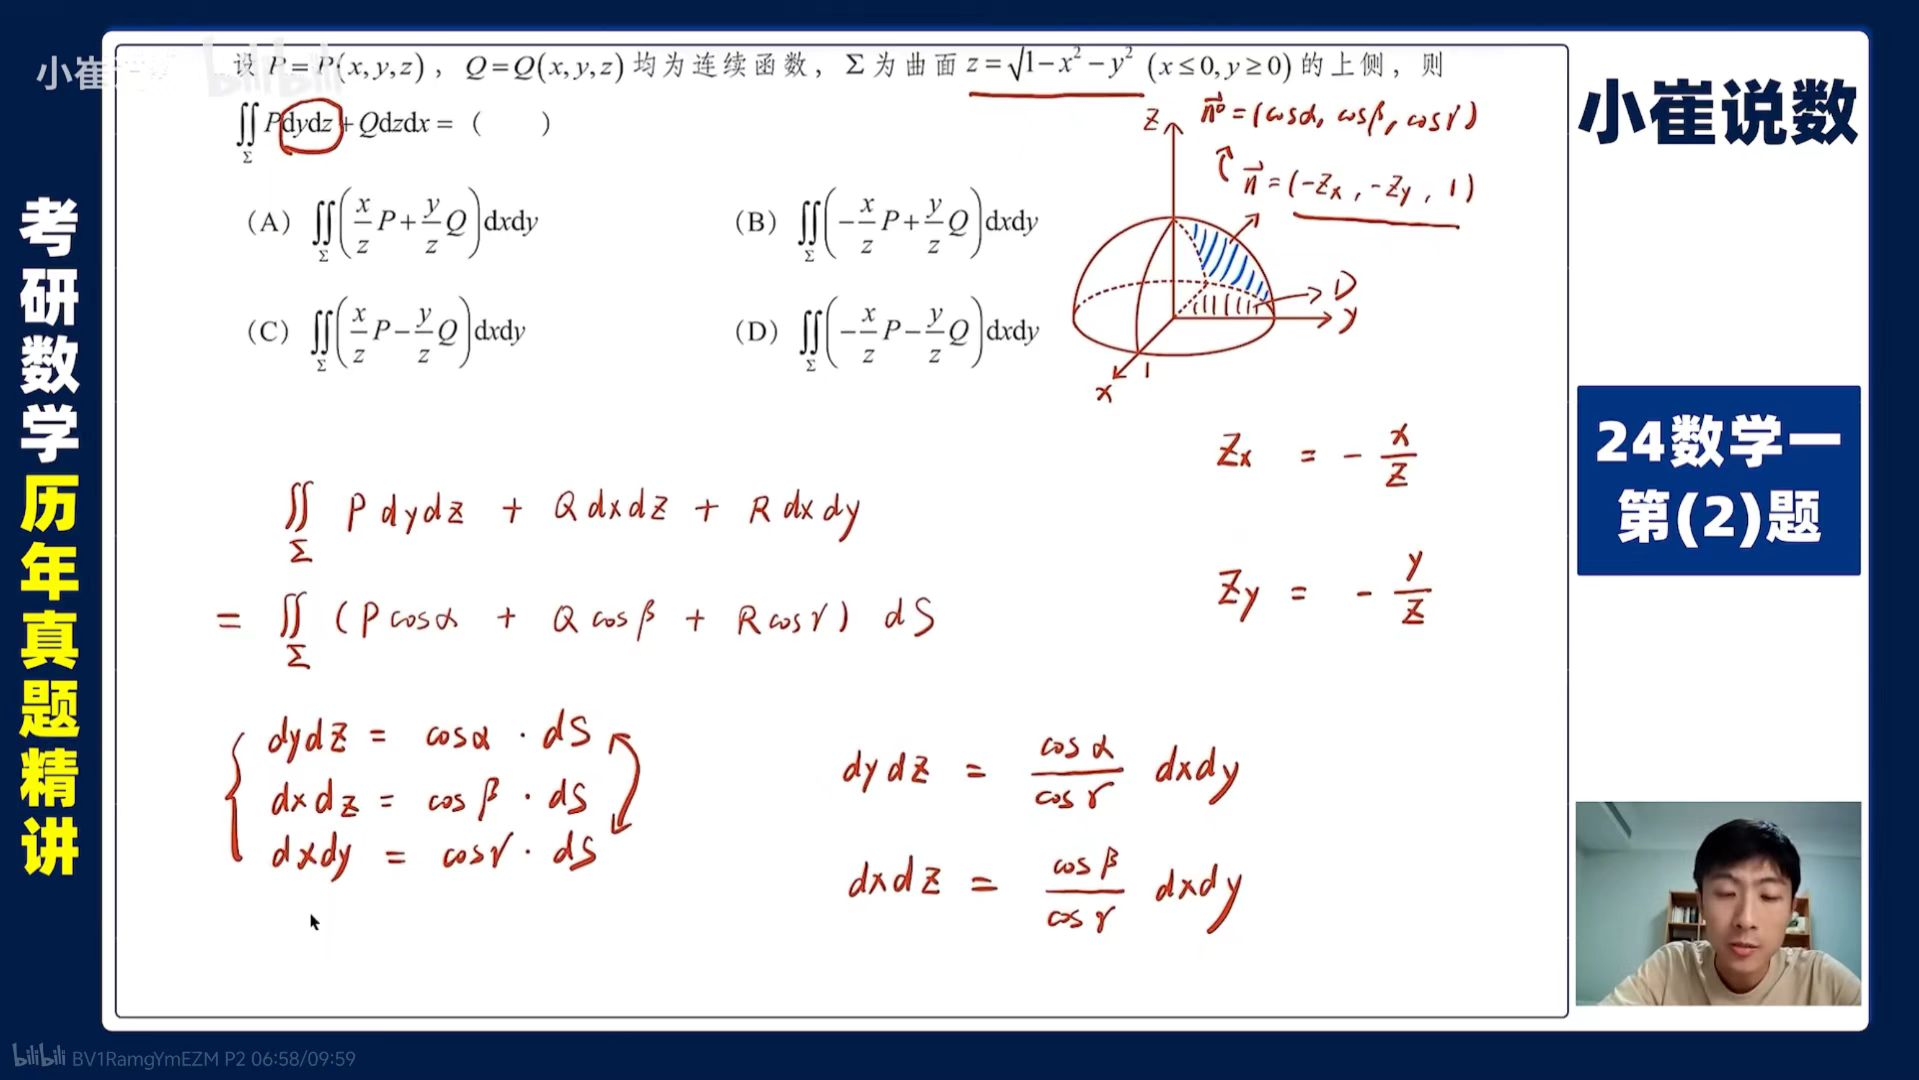 小崔
bilibili
设 P=P(x,y,z)，Q=Q(x,y,z)均为连续函数，Σ为曲面 z=√(1−x²−y²) (x≤0,y≥0)的上侧，则
∬_Σ Pdydz+Qdzdx=（ ）
(A) ∬_Σ (x/z P+y/z Q)dxdy
(B) ∬_Σ (−x/z P+y/z Q)dxdy
(C) ∬_Σ (x/z P−y/z Q)dxdy
(D) ∬_Σ (−x/z P−y/z Q)dxdy
n⃗° = (cosα, cosβ, cosγ)
n⃗ = (−Zx, −Zy, 1)
z
D
y
1
x
Zx = − x/z
Zy = − y/z
∬_Σ P dydz + Q dxdz + R dxdy
= ∬_Σ (P cosα + Q cosβ + R cosγ) dS
dydz = cosα · dS
dxdz = cosβ · dS
dxdy = cosγ · dS
dydz = cosα/cosγ dxdy
dxdz = cosβ/cosγ dxdy
考研数学历年真题精讲
小崔说数
24数学一
第(2)题
bilibili BV1RamgYmEZM P2 06:58/09:59